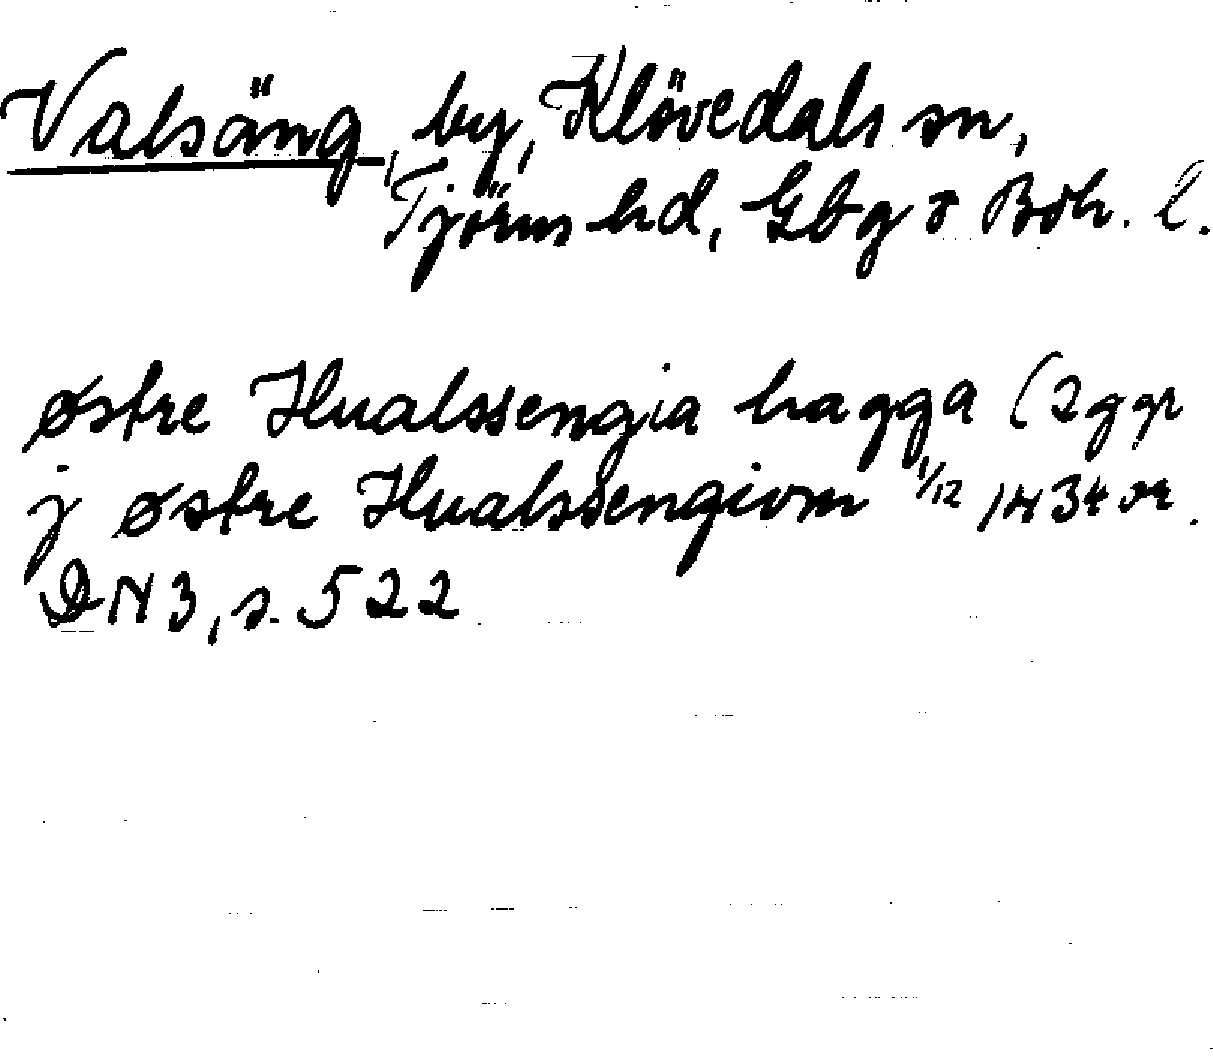 Valsäng, by, Klövedals sn,
Tjörns hd, Gbg o Boh. l.
østre Hualssengia hagga (2 ggr
j østre Hualssengiom 1/12 1434 or.
DN 3, s. 522